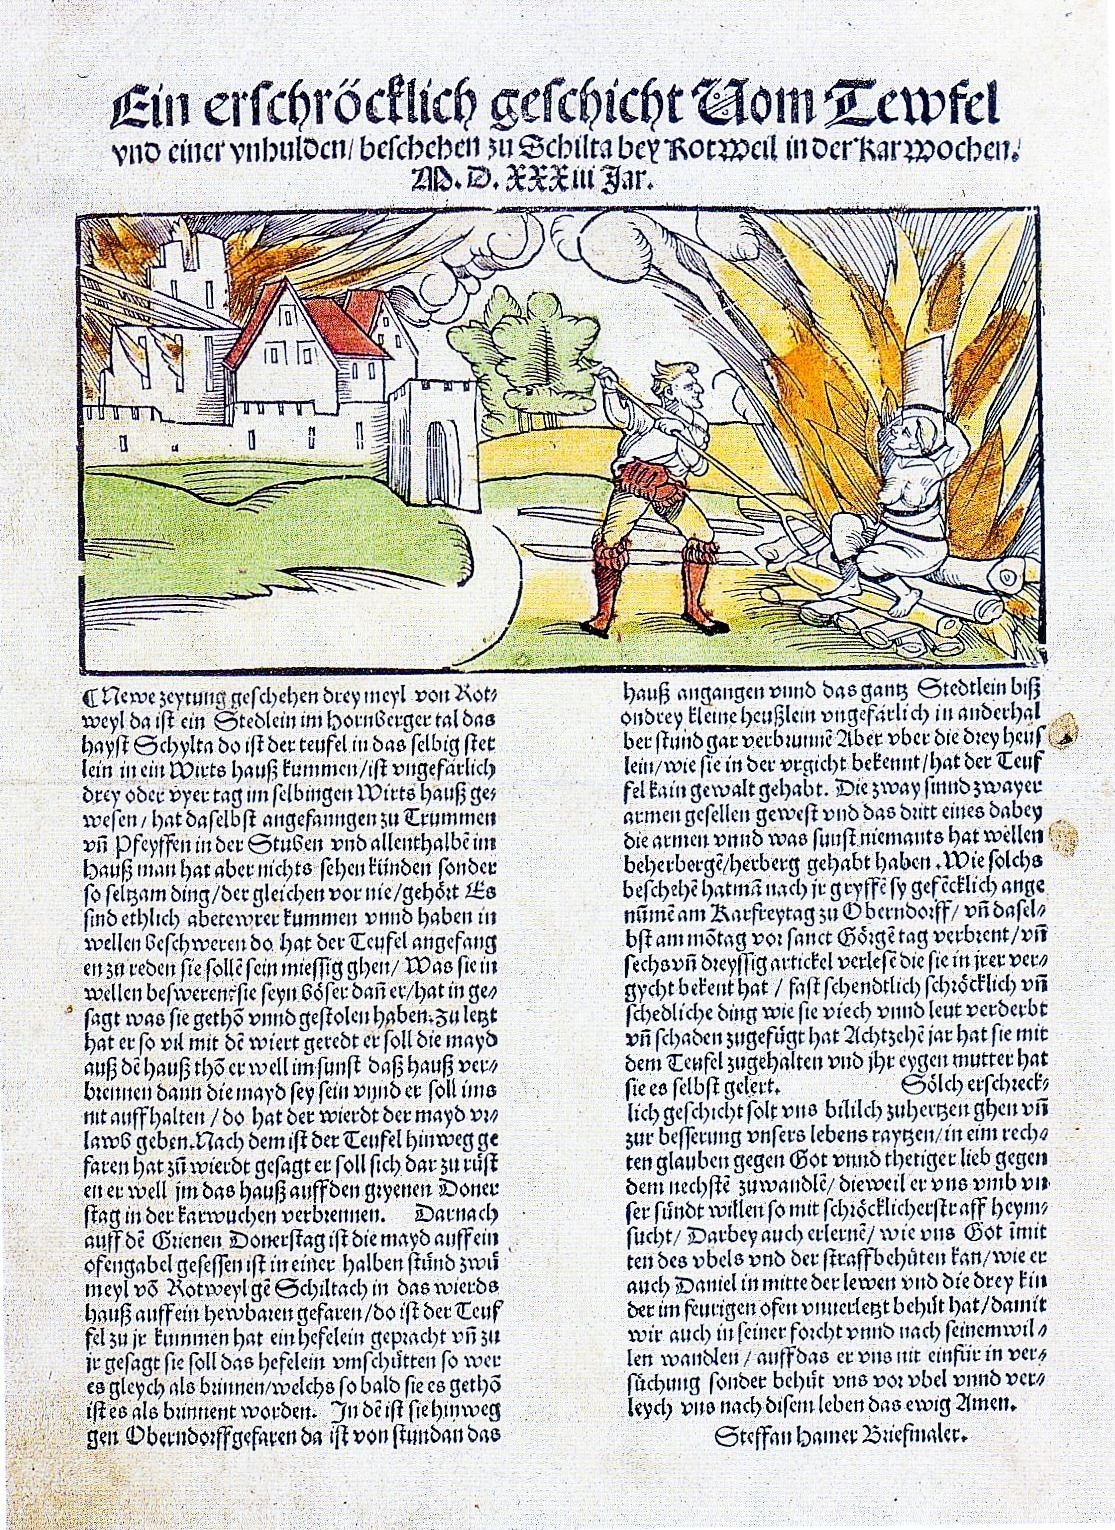 Ein erschröcklich geschicht Vom Tewfel
vnd einer vnhulden/ beschehen zu Schilta bey Rotweil in der Karwochen.
M. D. XXXiii Jar.
¶ Newe zeytung geschehen drey meyl von Rot⸗
weyl da ist ein Stedlein im Hornberger tal das
hayst Schylta do ist der teufel in das selbig stet
lein in ein Wirts hauß kummen/ist vngefärlich
drey oder vyer tag im selbingen Wirts hauß ge⸗
wesen/ hat daselbst angefanngen zu Trummen
vñ Pfeyffen in der Stuben vnd allenthalbē im
hauß man hat aber nichts sehen künden sonder
so seltzam ding/der gleichen vor nie/gehört Es
sind ethlich abetewrer kummen vnnd haben in
wellen beschweren do hat der Teufel angefang
en zu reden sie sollē sein miessig ghen/ Was sie in
wellen besweren: sie seyn böser dañ er/hat in ge⸗
sagt was sie gethō vnnd gestolen haben. Zu letzt
hat er so vil mit dē wiert geredt er soll die mayd
auß dē hauß thō er well im sunst daß hauß ver⸗
brennen dann die mayd sey sein vnnd er soll ims
nit auffhalten/ do hat der wierdt der mayd vr⸗
lawb geben. Nach dem ist der Teufel hinweg ge
faren hat zū wierdt gesagt er soll sich dar zu rüst
en er well jm das hauß auff den gryenen Doner
stag in der karwuchen verbrennen. Darnach
auff dē Grienen Donerstag ist die mayd auff ein
ofengabel gesessen ist in einer halben stūnd zwū
meyl vō Rotweyl gē Schiltach in das wierds
hauß auff ein hewbaren gefaren/do ist der Teuf
fel zu jr kummen hat ein hefelein gepracht vñ zu
ir gesagt sie soll das hefelein vmschütten so wer
es gleych als brinnen/welchs so bald sie es gethō
ist es als brinnent worden. In dē ist sie hinweg
gen Oberndorff gefaren da ist von stundan das
hauß angangen vnnd das gantz Stedtlein biß
on drey kleine heußlein vngefärlich in anderhal
ber stund gar verbrunnē Aber vber die drey heus
lein/wie sie in der vrgicht bekennt/hat der Teuf
fel kain gewalt gehabt. Die zway sinnd zwayer
armen gesellen gewest vnd das dritt eines dabey
die armen vnnd was sunst niemants hat wellen
beherbergē/herberg gehabt haben. Wie solchs
beschehē hat mā nach jr gryffē sy gefēcklich ange
nūmē am Karfreytag zu Oberndorff/ vñ dasel⸗
bst am mōtag vor sanct Görgē tag verbrent/vñ
sechs vñ dreyssig artickel verlesē die sie in jrer ver⸗
gycht bekent hat / fast schendtlich schröcklich vñ
schedliche ding wie sie viech vnnd leut verderbt
vñ schaden zugefügt hat Achtzehē jar hat sie mit
dem Teufel zugehalten vnd jhr eygen mutter hat
sie es selbst gelert. Sölch erschreck⸗
lich geschicht solt vns bililch zuhertzen ghen vñ
zur besserung vnsers lebens raytzen/in eim rech⸗
ten glauben gegen Got vnnd thetiger lieb gegen
dem nechstē zuwandlē/ dieweil er vns vmb vn
ser sündt willen so mit schröcklicher straff heym⸗
sucht/ Darbey auch erlernē/ wie vns Got imit
ten des vbels vnd der straff behüten kan/wie er
auch Daniel in mitte der lewen vnd die drey kin
der im feurigen ofen vnuerletzt behüt hat/damit
wir auch in seiner forcht vnnd nach seinem wil⸗
len wandlen / auff das er vns nit einfür in ver⸗
süchung sonder behüt vns vor vbel vnnd ver⸗
leych vns nach disem leben das ewig Amen.
Steffan Hamer Briefmaler.